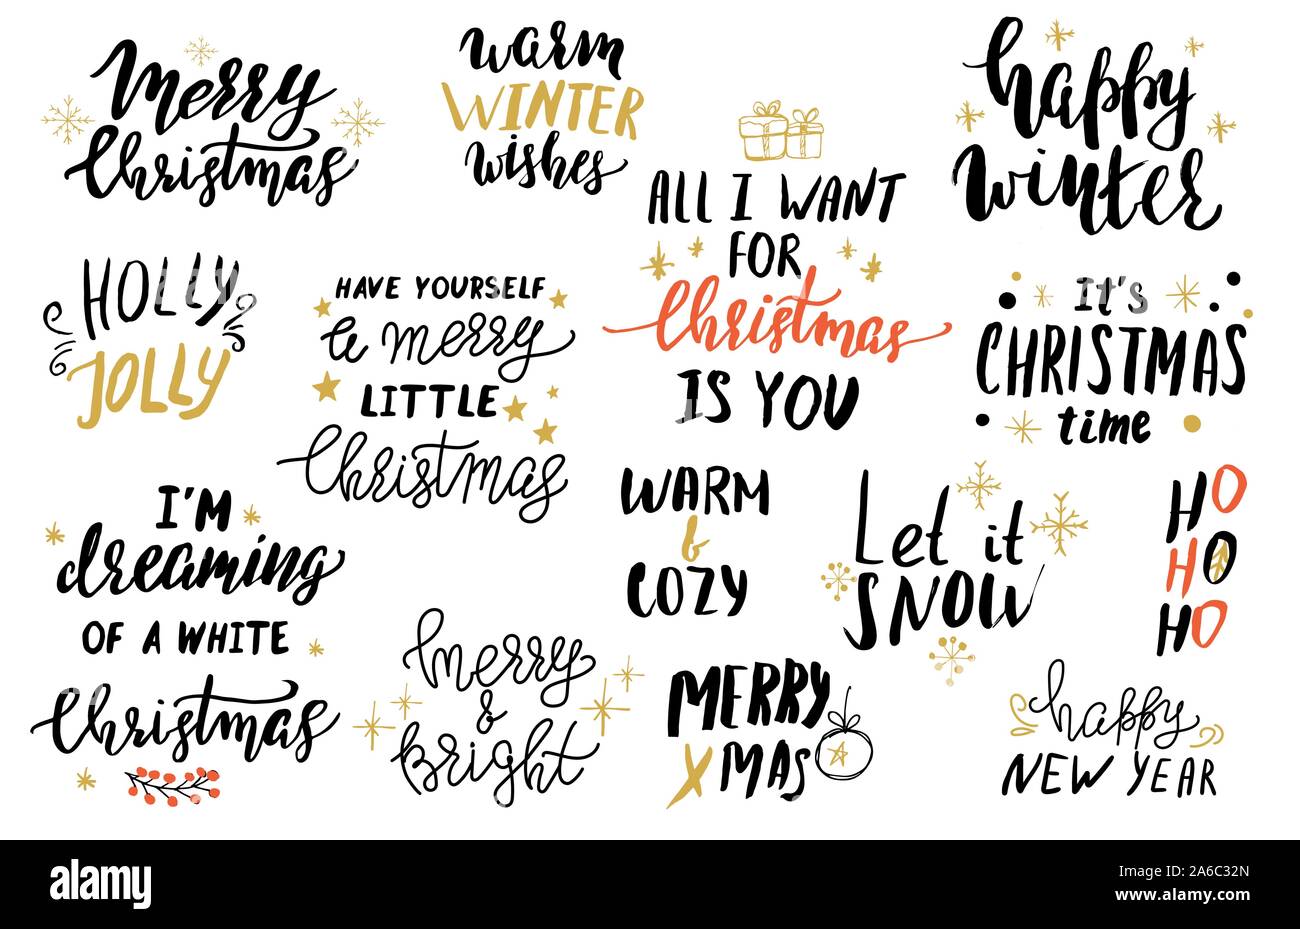 Merry
Christmas
warm
WINTER
wishes
ALL I WANT
FOR
Christmas
IS YOU
happy
winter
HOLLY
JOLLY
HAVE YOURSELF
a merry
LITTLE
Christmas
It's
CHRISTMAS
time
I'M
dreaming
OF A WHITE
Christmas
WARM
&
COZY
Let it
SNOW
HO
HO
HO
merry
&
Bright
MERRY
XMAS
happy
NEW YEAR
alamy
alamy
Image ID: 2A6C32N
www.alamy.com